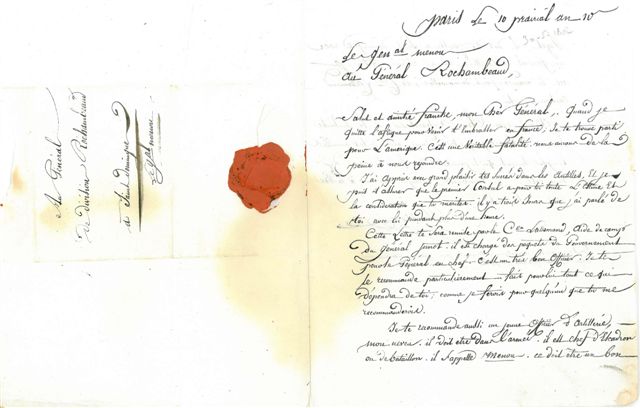 au Général
de division Rochambeau
à Saint domingue
le gal menou
paris le 10 prairial an 10
Le Genal menou
au Général Rochambeau,
Salut et amitié franche, mon cher Général, quand je
quitte l'afrique pour venir t'embrasser en france, je te trouve parti
pour L'amerique. c'est une véritable fatalité. nous avons de la
peine à nous rejoindre.
J'ai appris avec grand plaisir tes succès dans les antilles. Et je
puis t'assurer que le premier Consul a pour toi toute L'estime Et
la consideration que tu merites. il y a trois jours que j'ai parlé de
toi avec lui pendant plus d'une heure.
Cette Lettre te sera remise par le Cen Lallemand, aide de camp
du Général junot. il est chargé des paquets du Gouvernement
pour le Général en chef. c'est un très bon officier. je te
le recommande particulierement. fais pour lui tout ce qui
dépendra de toi, comme je ferois pour quelqu'un que tu me
recommanderois.
Je te recommande aussi un jeune officier d'artillerie,
mon neveu. il doit être dans l'armée. il est chef d'Escadron
ou de bataillon. il s'appelle menou. ce doit être un bon